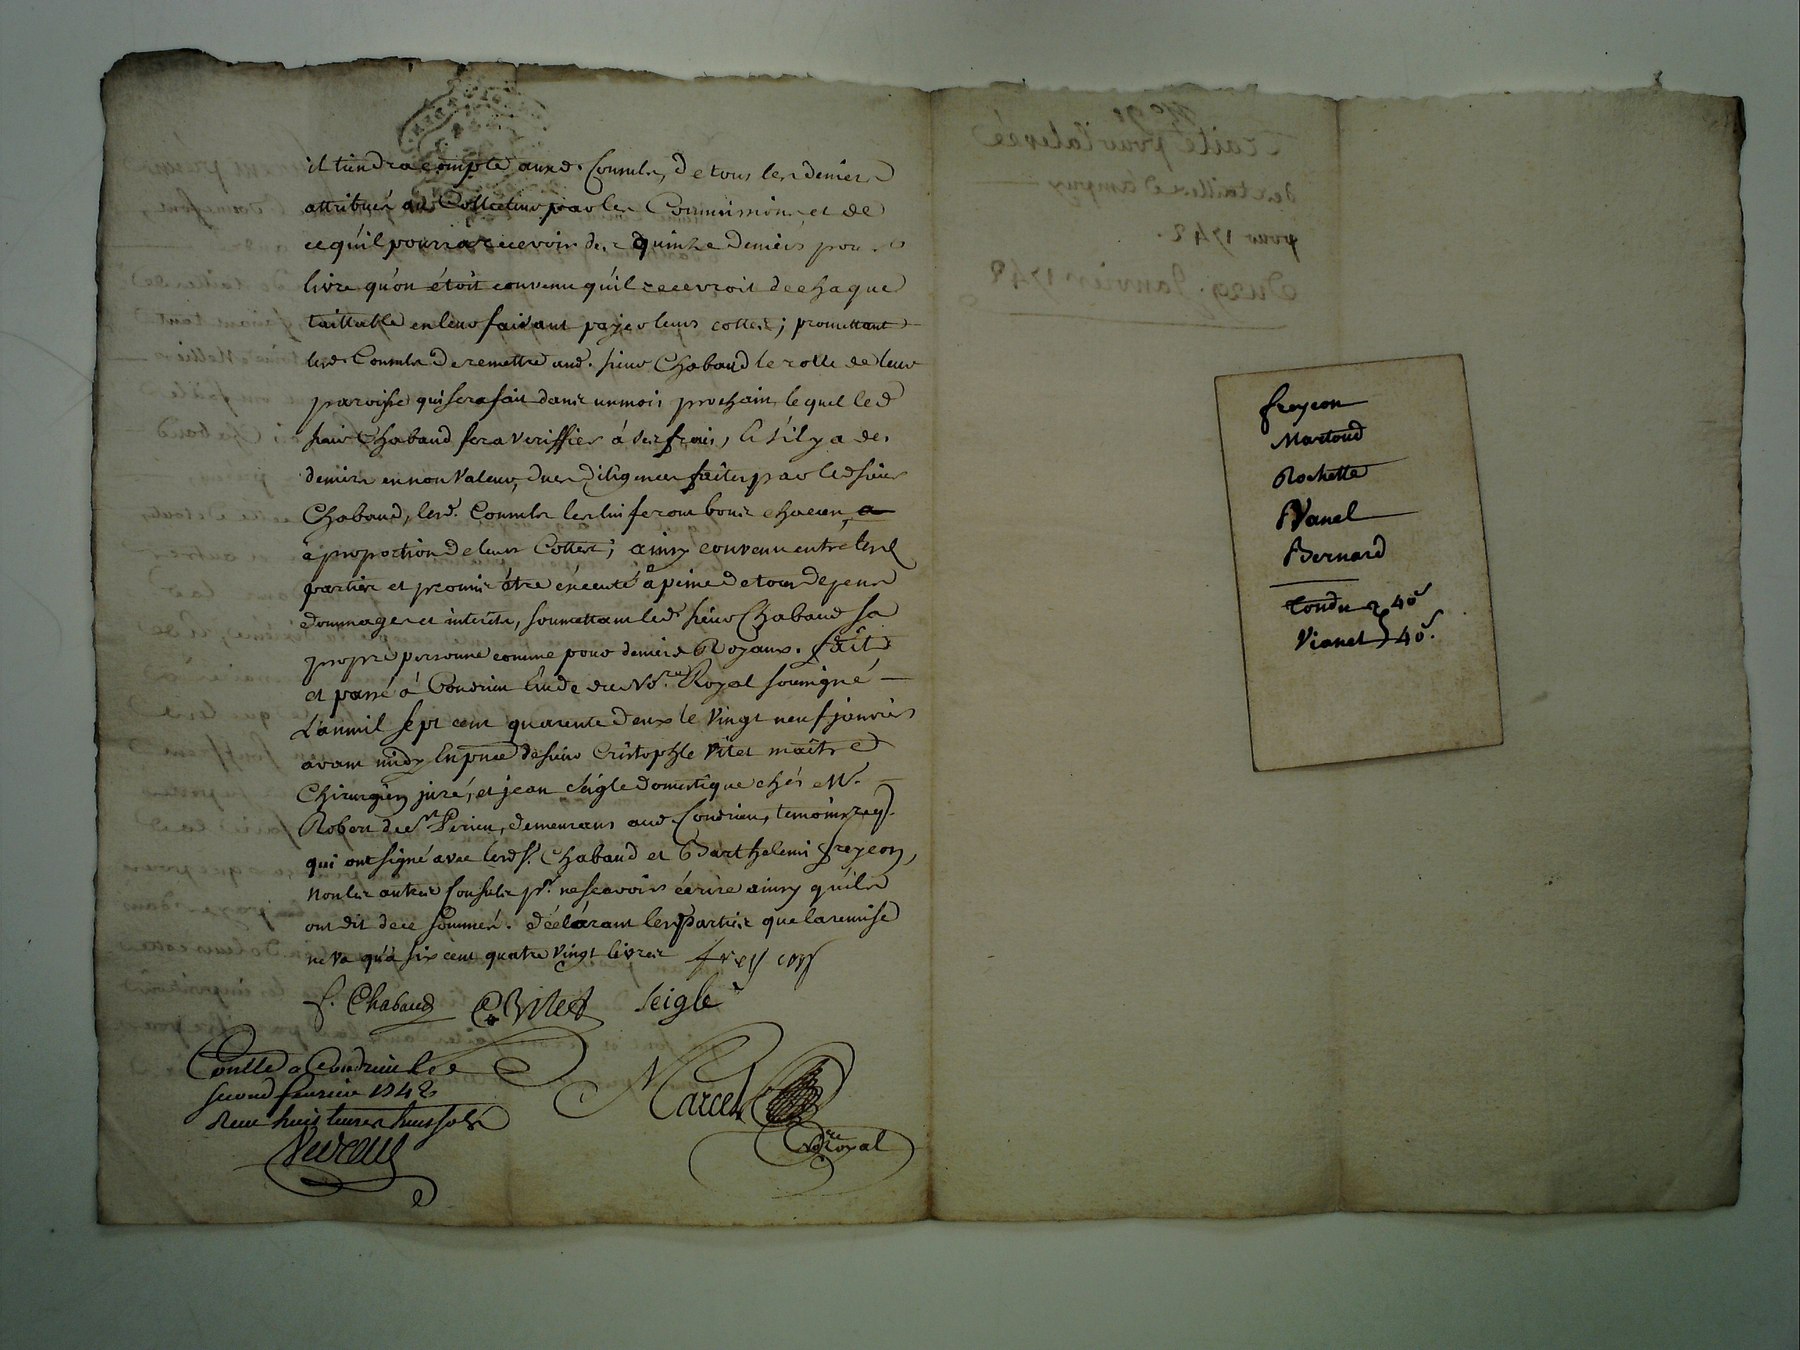 il tiendra compte auxd. Consuls, de tous les deniers
attribués aux Collecteurs par les Commissions, et de
ce qu'il pourra recevoir des quinze deniers pour
livre qu'on étoit convenu qu'il recevroit de chaque
taillable en leur faisant payer leurs cottes; promettant
lesd. Consuls de remettre aud. sieur Chabaud le rolle de leur
paroisse qui sera fait dans un mois prochain, lequel led
sieur Chabaud fera veriffier à ses frais, & s'il y a des
deniers en non valeur, dues diligences faites par led sieur
Chabaud, lesd. Consuls les lui feront bons chacun
à proportion de leurs Cottes; ainsy convenu entre lesd
parties et promis être éxécuté à peine de tous depens
dommages et interets, soumettant led. sieur Chabaud sa
propre personne comme pour deniers Royaux. fait
et passé à Condrieu Étude du No.re Royal soussigné
L'an mil sept cent quarente deux le vingt neuf janvier
avant midy En pnce de sieur Cristophle Vitet maitre
Chirurgien juré, et jean seigle domestique chés M.
Robert de St Perieu, demeurans aud Condrieu, temoins req.
qui ont signé avec led s. Chabaud et Barthelemi freycon,
non les autres Consuls pr. ne scavoir écrire ainsy qu'ils
ont dit de ce sommés. déclarant lesd Parties que la remise
ne va qu'à six cent quatre vingt livres frey con
f. Chabaud C Vitet seigle
Conllé a Condrieu le
second fevrier 1742
Receu huit livres huit sols
Marcel
No.re Royal
traité pour la levée
des tailles d'ampuy
pour 1742.
Du 29. Janvier 1742
freycon
Martoud
Rochette
Vanel
Bernard
Condu } 40s
Vianet } 40s.